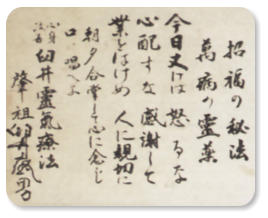 招福の秘法
萬病の霊薬
今日丈けは 怒るな
心配すな 感謝して
業をはげめ 人に親切に
朝夕合掌して心に念じ
口に唱へよ
心身改善 臼井靈氣療法
肇祖 臼井甕男